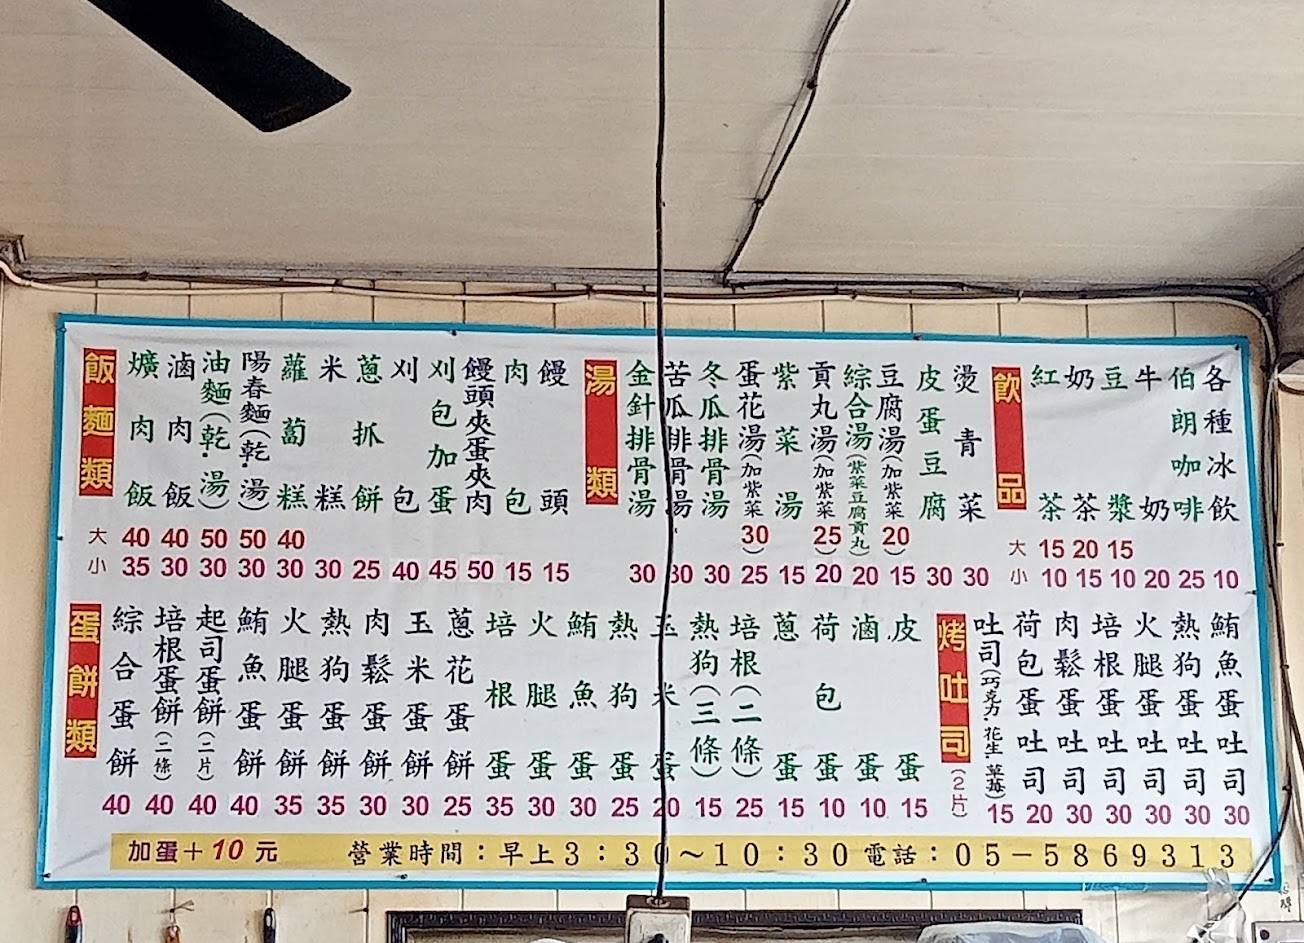 飯麵類
爌肉飯 大40 小35
滷肉飯 40 30
油麵(乾.湯) 50 30
陽春麵(乾.湯) 50 30
蘿蔔糕 40 30
米糕 30
蔥抓餅 25
刈包 40
刈包加蛋 45
饅頭夾蛋夾肉 50
肉包 15
饅頭 15
湯類
金針排骨湯 30
苦瓜排骨湯 30
冬瓜排骨湯 30
蛋花湯(加紫菜30) 25
紫菜湯 15
貢丸湯(加紫菜25) 20
綜合湯(紫菜豆腐貢丸) 20
豆腐湯(加紫菜20) 15
皮蛋豆腐 30
燙青菜 30
飲品
紅茶 大15 小10
奶茶 20 15
豆漿 15 10
牛奶 20
伯朗咖啡 25
各種冰飲 10
蛋餅類
綜合蛋餅 40
培根蛋餅(二條) 40
起司蛋餅(二片) 40
鮪魚蛋餅 40
火腿蛋餅 35
熱狗蛋餅 35
肉鬆蛋餅 30
玉米蛋餅 30
蔥花蛋餅 25
培根蛋 35
火腿蛋 30
鮪魚蛋 30
熱狗蛋 25
玉米蛋 20
熱狗(三條) 15
培根(二條) 25
蔥蛋 15
荷包蛋 10
滷蛋 10
皮蛋 15
烤吐司(2片)
吐司(巧克力.花生.草莓) 15
荷包蛋吐司 20
肉鬆蛋吐司 30
培根蛋吐司 30
火腿蛋吐司 30
熱狗蛋吐司 30
鮪魚蛋吐司 30
加蛋+10元 營業時間:早上3:30~10:30 電話:05-5869313